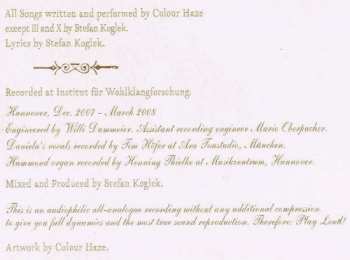 All Songs written and performed by Colour Haze
except III and X by Stefan Koglek.
Lyrics by Stefan Koglek.
Recorded at Institut für Wohlklangforschung.
Hannover, Dec. 2007 - March 2008
Engineered by Willi Dammeier. Assistant recording engineer Mario Oberpucher.
Daniela's vocals recorded by Tom Höfer at Ava Tonstudio, München.
Hammond organ recorded by Henning Thielke at Musikzentrum, Hannover.
Mixed and Produced by Stefan Koglek.
This is an audiophilic all-analogue recording without any additional compression
to give you full dynamics and the most true sound reproduction. Therefore: Play Loud!
Artwork by Colour Haze.